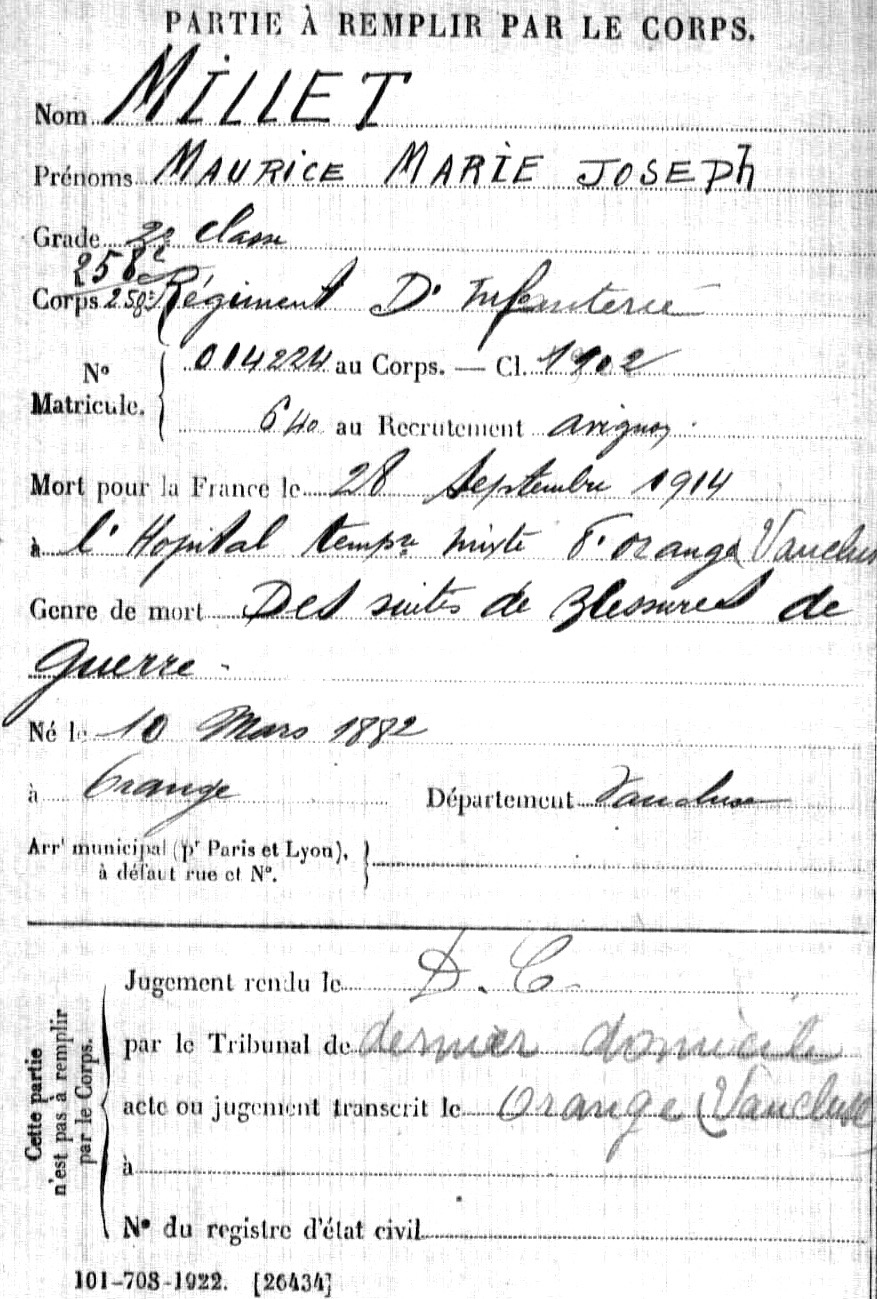 PARTIE À REMPLIR PAR LE CORPS.
Nom MILLET
Prénoms MAURICE MARIE JOSEPH
Grade 2e classe
258e
Corps 258e Régiment D' Infanterie
No Matricule. 014224 au Corps. — Cl. 1902
640 au Recrutement avignon.
Mort pour la France le 28 Septembre 1914
à l' Hopital tempre mixte d' orange Vaucluse
Genre de mort Des suites de Blessures de
Guerre -
Né le 10 Mars 1882
à Orange Département Vaucluse
Arrt municipal (pr Paris et Lyon),
à défaut rue et No.
Cette partie
n'est pas à remplir
par le Corps.
Jugement rendu le D. C.
par le Tribunal de dernier domicile
acte ou jugement transcrit le Orange (Vaucluse
à
No du registre d'état civil
101-708-1922. [26434]